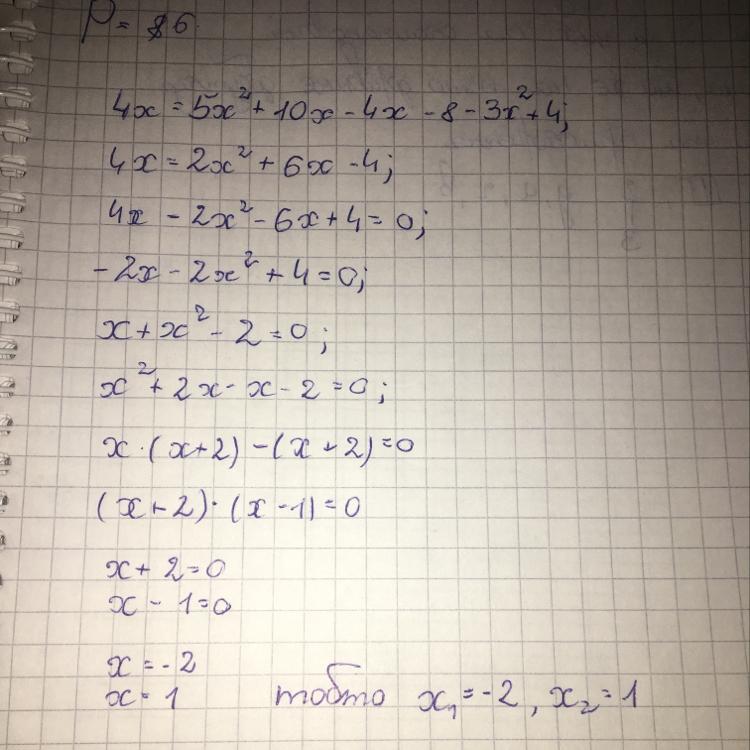 P = 86
4x = 5x² + 10x - 4x - 8 - 3x² + 4;
4x = 2x² + 6x - 4;
4x - 2x² - 6x + 4 = 0;
-2x - 2x² + 4 = 0;
x + x² - 2 = 0;
x² + 2x - x - 2 = 0;
x · (x + 2) - (x + 2) = 0
(x + 2) · (x - 1) = 0
x + 2 = 0
x - 1 = 0
x = -2
x = 1 тобто x₁ = -2, x₂ = 1